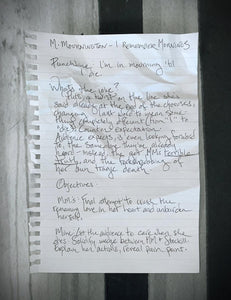 M. Mourningston - I Remember Mornings
Punchline: I'm in mourning 'til
I die.
What's the joke?
Putting a twist on the line she's
said already at the end of the choruses,
changing last line to mean some-
thing completely different (from "I"m to
"I die"). Counters expectation.
Audience expects, is even looking forward
to the same line they've already
heard - instead, they get MM's terrible
truth, and the foreshadowing of
her own tragic death
Objectives:
MM's: Final attempt to crush the
remaining love in her heart and unburden
herself.
Mine: Get the audience to care when she
dies. Solidify wedge between MM &
explain her actions, reveal pain point.